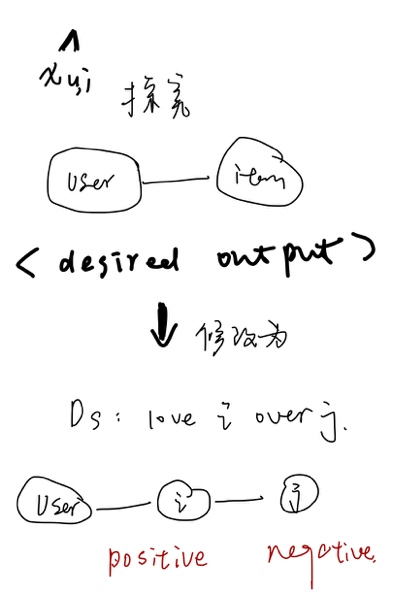 ^
xu,i 探究
user item
< desired output >
↓ 修改为
Ds: love i over j.
User i j
positive negative.